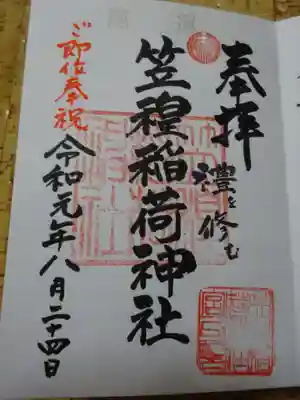 奉拝
禮を修む
笠䅣稲荷神社
令和元年八月二十四日
ご即位奉祝